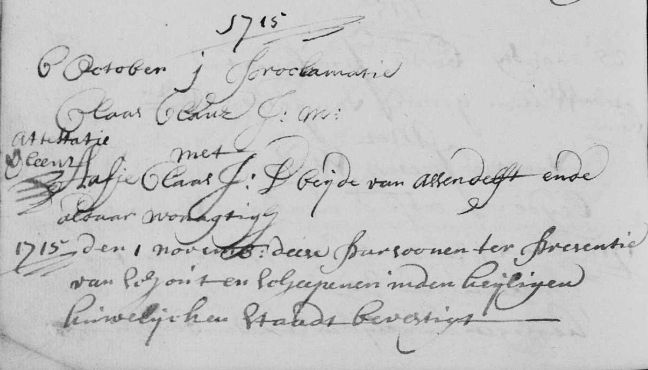 1715
6 October j Proclamatie
Claas Claasz J: M:
met
Attestatie
Claas J: D beyde van Assendelft ende
aldaar wonagtigh
1715 den 1 novemb: deese Parsoonen ter Presentie
van Schout en Scheepenen inden heyligen
huwelycken Staadt bevestigt